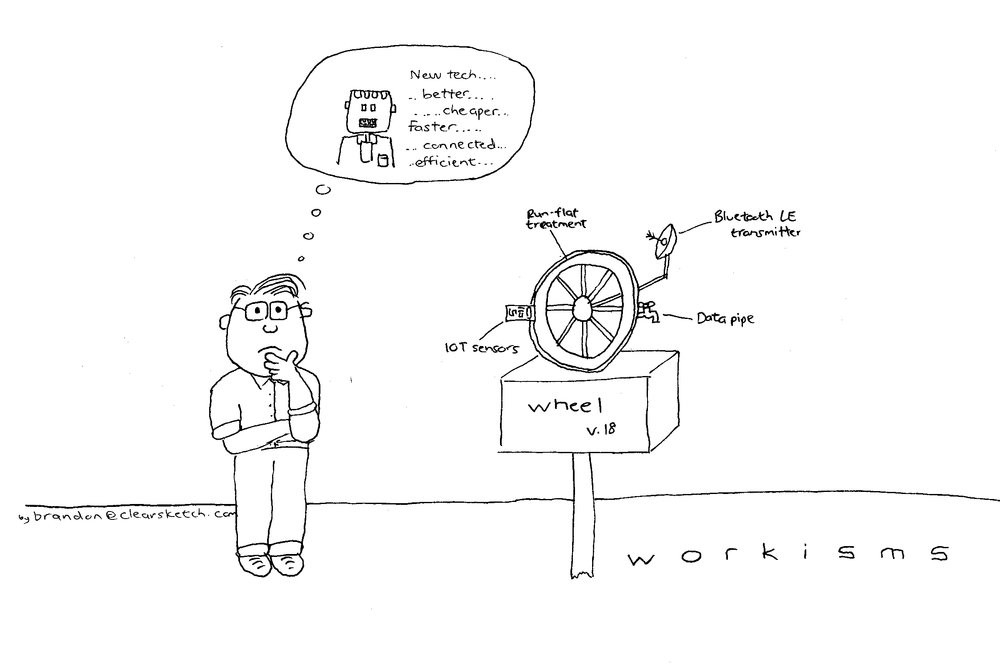 New tech....
.. better.... .
.....cheaper...
faster.....
... connected...
..efficient...
Run-flat
treatment
Bluetooth LE
transmitter
Data pipe
IOT sensors
wheel
v.18
by brandon@clearsketch.com
workisms